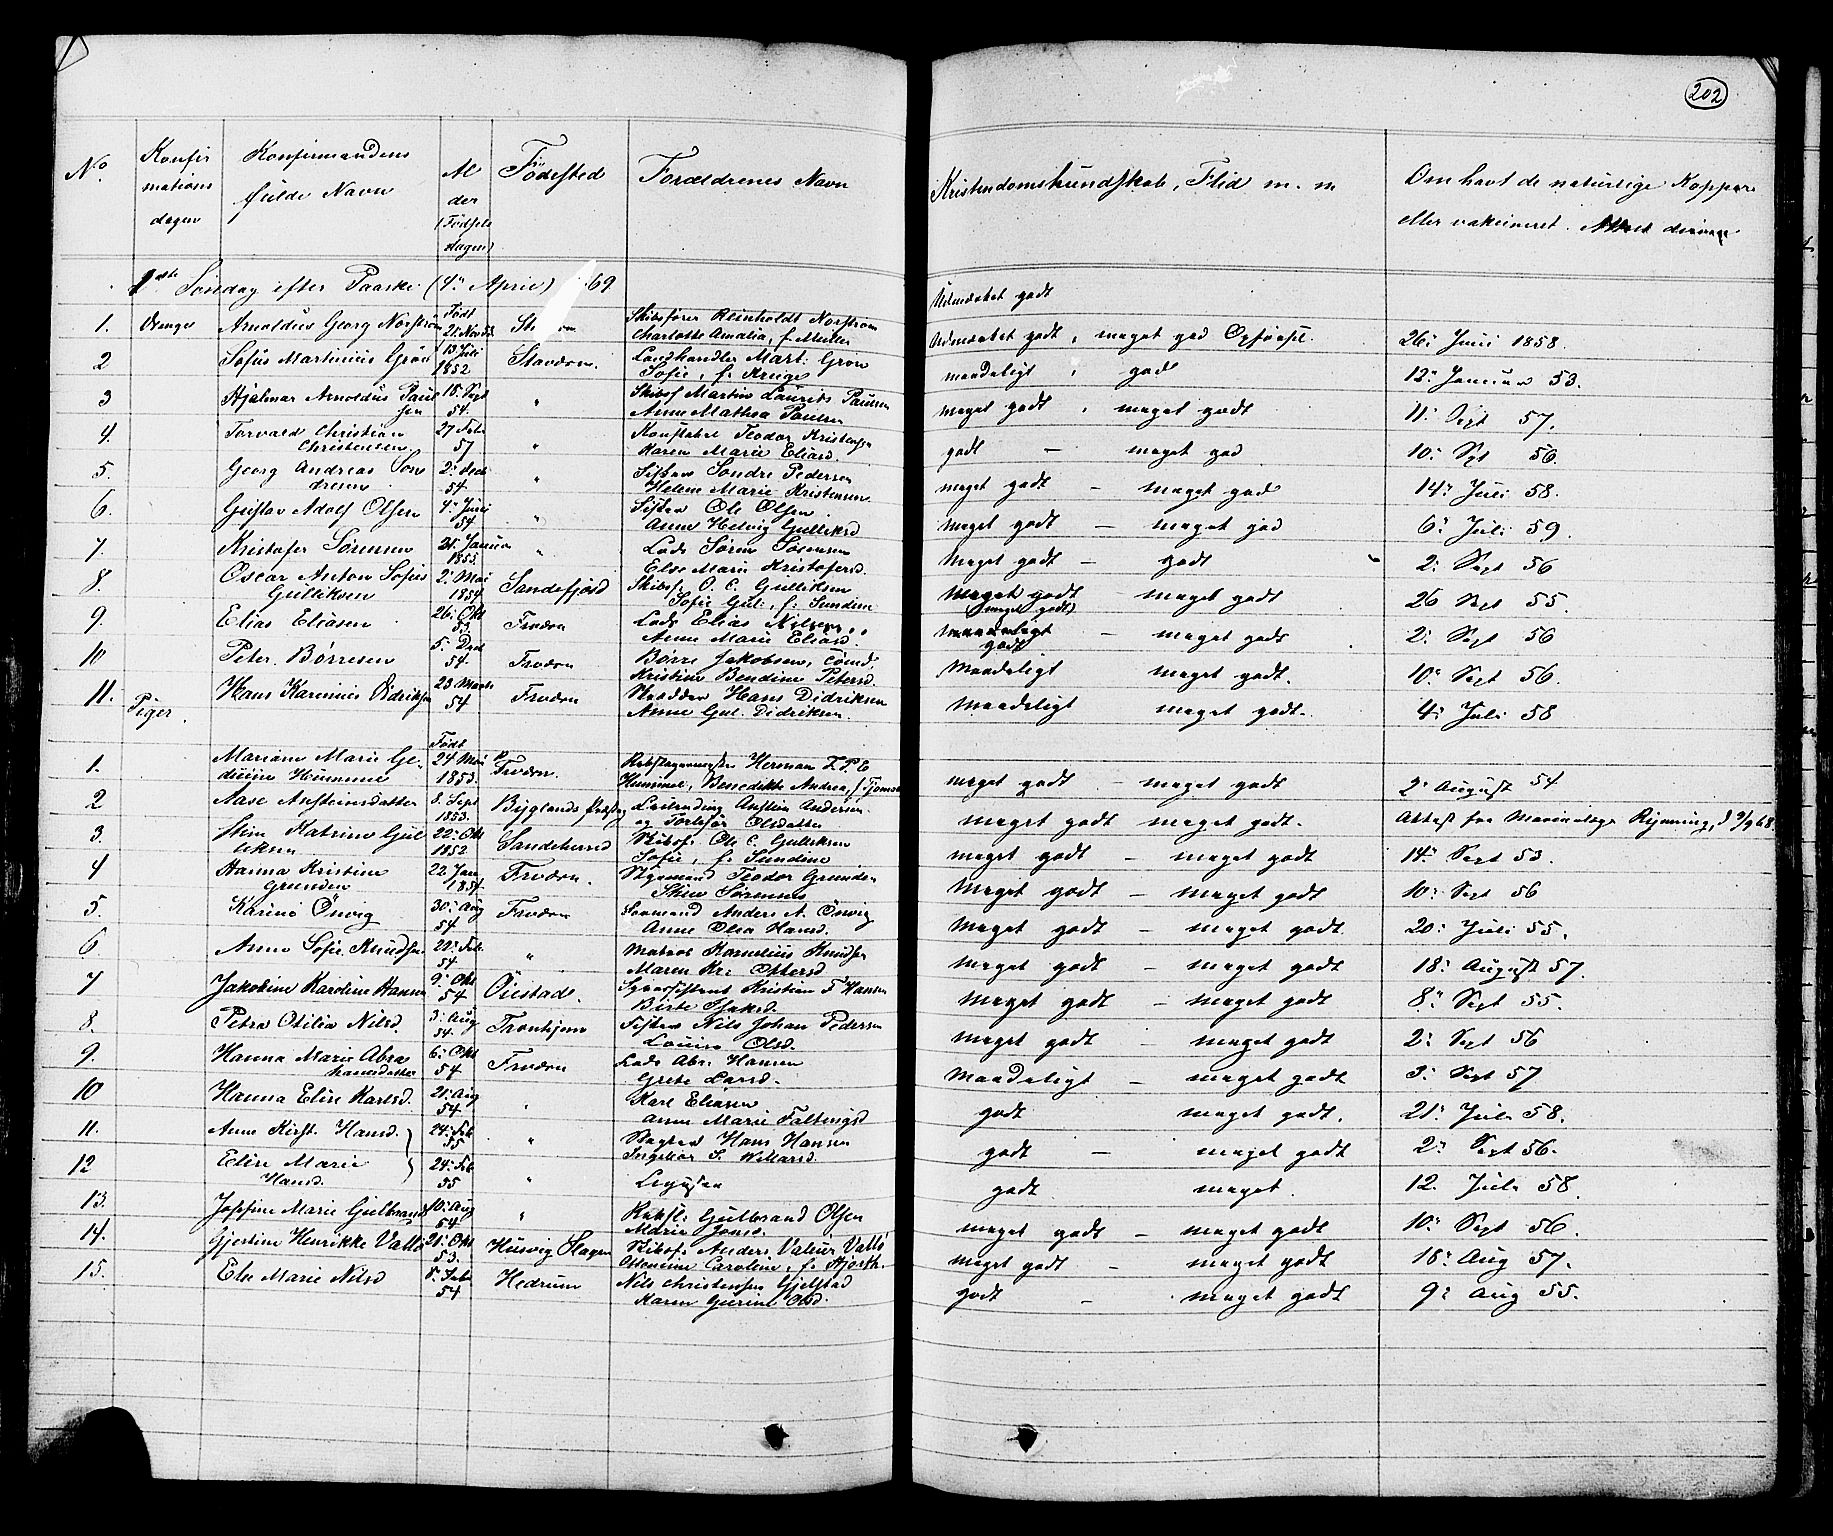 202
No
Konfir
mations
dagen
Konfirmandens
fulde Navn
Al
der
(Fødsels
dagen)
Fødested
Forældrenes Navn
Kristendomskundskab, Flid m. m
Om havt de naturlige Kopper
eller vakcineret.
1ste Søndag efter Paaske (4: April) 69
Drenge
Udmærket godt
1. Arnoldus Georg Norstrøm Født 21 Novbr Skibsfører Reinholdt Norstrøm
Charlotte Amalia, f. Müller
Udmærket godt, meget god Opførsel. 26: Juni 1858.
2 Sofus Martinius Grøn 13 Juli 1852 Staværn. Landhandler Mart. Grøn
Sofie, f. Kruge
maadeligt, god 12: Januar 53.
3 Hjalmar Arnoldus Paulsen 15. Sept 54. " Skibsf Martin Laurits Paulsen
Anne Mathea Paulsen
meget godt, meget godt 11: Sept 57.
4. Torvald Christian Christensen 27 Febr 57 " Konstabel Teodor Kristensen
Karen Marie Eliasd.
godt — meget god 10: Spt 56.
5. Georg Andreas Søndresen 2: Dec 54. " Fisker Søndre Pedersen
Helene Marie Kristensen
meget godt — meget god 14: Juli 58.
6. Gustav Adolf Olsen 4: Juni 54. " Fisker Ole Olsen
Anne Helvig Gulliksd
meget godt — meget god 6: Juli 59
7. Kristofer Sørensen 21. Januar 1855. " Lods Søren Sørensen
Else Marie Kristofersd.
Meget godt — godt 2: Sept 56
8. Oscar Anton Sofus Gulliksen 2: Mai 1854. Sandefjord Skibsf. O. C. Gulliksen
Sofie Gul: f. Sundine
Meget godt meget godt 26 Sept 55.
9. Elias Eliasen 26: Okt 53. Frværn Lods Elias Nilsen
Anne Marie Eliasd.
(meget godt)
godt — meget godt 2: Sept 56
10 Peter Børresen 5: Decb 54 Frværn Børre Jakobsen, Tømd.
Kristine Bendine Petersd.
Maadeligt meget godt. 10: Sept 56.
11. Hans Karinius Didriksen 23 Marts 54 Frværn Skrædder Hans Didriksen
Anne Gul. Didriksen.
Maadeligt meget godt. 4: Juli 58
Piger.
Født
1. Mariane Marie Gedine Hummel 24 Mai 1853. Frværn. Rebslagermester Herman F. P. E
Hummel, Benedikte Andrea, f. Tjomsl
meget godt — meget godt 2: August 54
2 Aase Ansteinsdatter 8. Sept 1853. Byglands Prstg Leilending Anstein Andersen
og Torbjør Olsdatter
meget godt meget godt. Attest fra Marinelæge Rynning, d 9/9 68.
3. Stine Katrine Gulliksen 22: Okt 1852 Sandeherred Skibsf. Ole C. Gulliksen
Sofie, f. Sundine
meget godt — meget godt 14: Sept 53.
4 Hanna Kristine Grunden 22 Jan 1854. Frværn. Styrmand Teodor Grunden
Stine Sørensen
Meget godt — meget godt 10: Sept 56
5. Karine Önvig 30: Aug 54 Frværn Sømand Anders A. Önvig
Anne Olea Hansd.
Meget godt — meget godt. 20: Juli 55.
6 Anne Sofie Knudsen 20: Feb. 54. " Matros Kornelius Knudsen
Maren Kr: Ottersd
Meget godt — meget godt 18: August 57.
7 Jakobine Karoline Hansen 9: Okt 54 Öiestad. Kristian F Hansen
Birte Isaksd.
meget godt — meget godt 8: Sept 55.
8. Petra Otilia Nilsd. 3: Aug 54. Tronhjem Fisker Nils Johan Pedersen
Lovise Olsd.
meget godt — meget godt 2: Sept 56
9. Hanna Marie Abrahamsdatter 6: Okt 54 Frværn Lods Abr. Hansen
Grete Larsd.
Maadeligt — meget godt 3: Sept 57
10 Hanna Elise Karlsd. 21: Aug 54 " Karl Eliasen
Anne Marie Faltingsd
godt meget godt. 21: Juli 58.
11. Anne Kirst. Hansd. 24: Feb 55 " Hans Hansen
Ingebor S. Willarsd.
godt — meget godt 2: Sept 56.
12 Elise Marie Hansd. 24: Feb 55 "
godt. meget. 12. Juli 58.
13. Josfine Marie Gulbrands 10: Aug 54. " Gulbrand Olsen
Marie Jonsd.
meget godt — meget godt 10: Sept 56.
14. Gjertine Henrikke Vallø 21: Okt 53. Husvig Slagen Skibsf. Anders Valeur Vallø
Ottenine Caroline, f. Hjorth.
meget godt — meget godt 18: Aug 57.
15. Else Marie Nilsd 8: Feb 54 Hedrum Nils Christensen Gjelstad
Karen Gurine Olsd.
godt — meget godt 9: Aug 55.